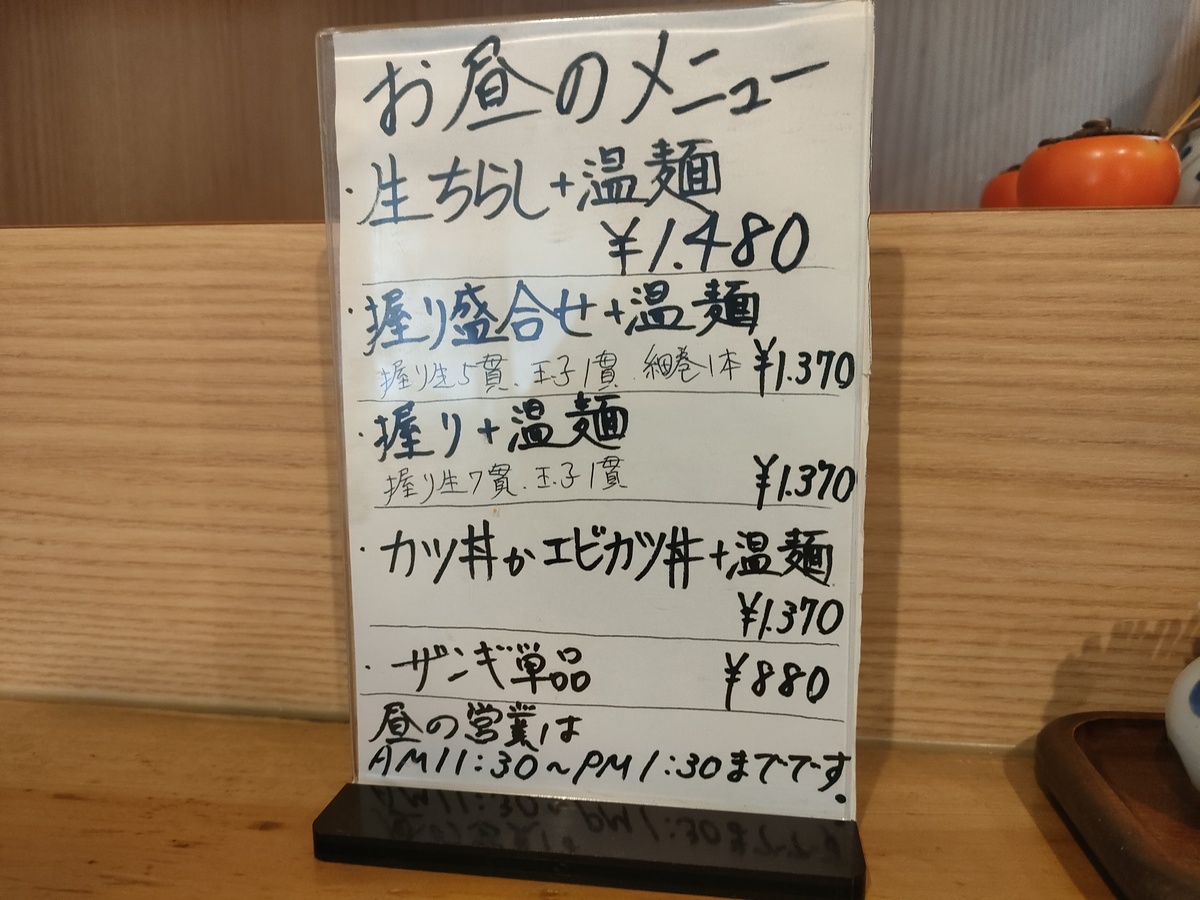 お昼のメニュー
・生ちらし+温麺
¥1.480
・握り盛合せ+温麺
握り生5貫、玉子1貫、細巻1本 ¥1.370
・握り+温麺
握り生7貫、玉子1貫 ¥1.370
・カツ丼かエビカツ丼+温麺
¥1.370
・ザンギ単品 ¥880
昼の営業は
AM11:30~PM1:30までです。